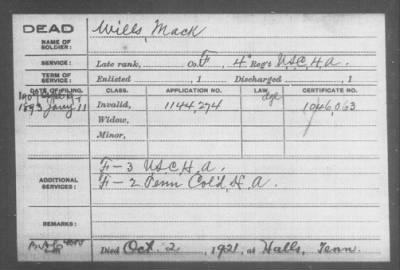 DEAD
NAME OF SOLDIER: Wills, Mack
SERVICE: Late rank, Co. F, 4" Reg't U.S.C.H.A.
TERM OF SERVICE: Enlisted , 1 Discharged , 1
DATE OF FILING. CLASS. APPLICATION NO. LAW. CERTIFICATE NO.
1893 Jany 11 Invalid, 1144,274 1046,063
Widow,
Minor,
ADDITIONAL SERVICES: F-3 U.S.C.H.A.
F-2 Tenn Col'd H.A.
REMARKS:
Died Oct. 2, 1921, at Halls, Tenn.